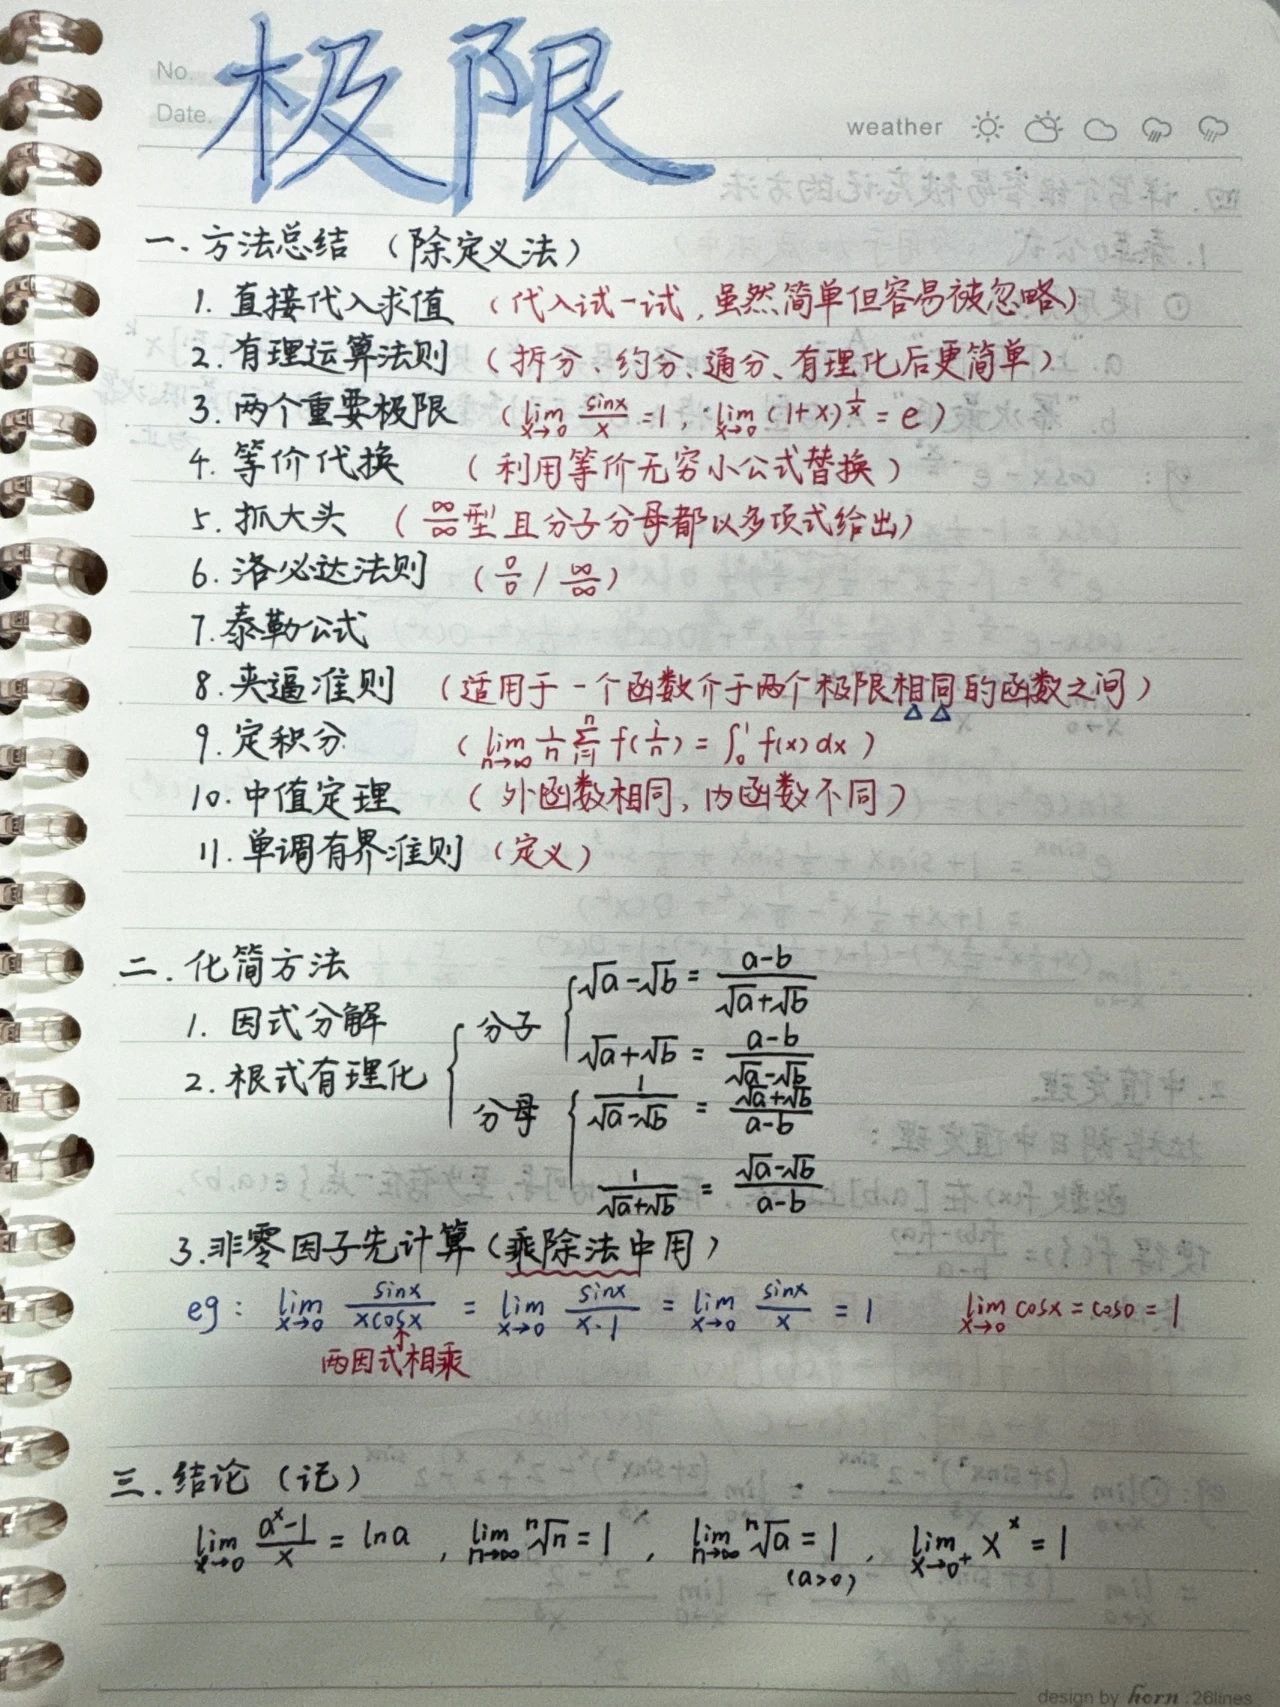 极限
No.
Date.
weather
一. 方法总结 (除定义法)
1. 直接代入求值 (代入试一试, 虽然简单但容易被忽略)
2. 有理运算法则 (拆分、约分、通分、有理化后更简单)
3. 两个重要极限 (lim_{x→0} sinx/x = 1, lim_{x→0} (1+x)^{1/x} = e)
4. 等价代换 (利用等价无穷小公式替换)
5. 抓大头 (∞/∞型且分子分母都以多项式给出)
6. 洛必达法则 (0/0 / ∞/∞)
7. 泰勒公式
8. 夹逼准则 (适用于一个函数介于两个极限相同的函数之间)
9. 定积分 (lim_{n→∞} 1/n Σ_{i=1}^{n} f(i/n) = ∫_0^1 f(x)dx)
10. 中值定理 (外函数相同, 内函数不同)
11. 单调有界准则 (定义)
二. 化简方法
1. 因式分解
2. 根式有理化
分子 √a-√b = (a-b)/(√a+√b)
√a+√b = (a-b)/(√a-√b)
分母 1/(√a-√b) = (√a+√b)/(a-b)
1/(√a+√b) = (√a-√b)/(a-b)
3. 非零因子先计算 (乘除法中用)
eg: lim_{x→0} sinx/(xcosx) = lim_{x→0} sinx/(x·1) = lim_{x→0} sinx/x = 1 lim_{x→0} cosx = cos0 = 1
两因式相乘
三. 结论 (记)
lim_{x→0} (a^x-1)/x = lna, lim_{n→∞} ⁿ√n = 1, lim_{n→∞} ⁿ√a = 1, lim_{x→0+} x^x = 1
(a>0)
design by horn 26lines